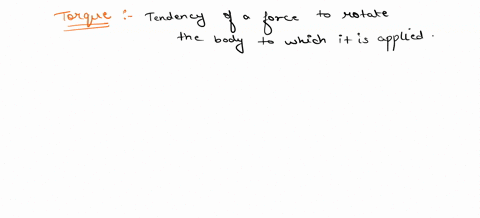 Torque :- Tendency of a force to rotate
the body to which it is applied.